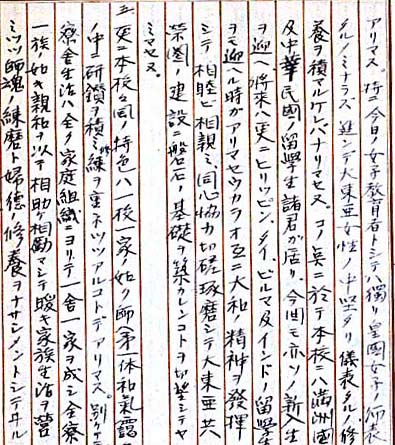 アリマス。特ニ今日ノ女子教育者トシテハ獨リ皇國女子ノ師表
タルノミナラズ進ンデ大東亜女性ノ中堅タリ儀表タルノ修
養ヲ積マルケレバナリマセヌ。コノ点ニ於テ本校ニハ満洲國
及中華民國ノ留學生諸君が居リ、今囬モ亦ソノ新入生
ヲ迎ヘ将来ハ更ニヒリッピン、タイ、ビルマ及インドノ留學生
ヲモ迎ヘル時がアリマセウカラオ互ニ大和ノ精神ヲ發揮
シテ相睦ビ相親ミ、同心協力切磋琢磨シテ大東亜共
榮圏ノ建設ニ磐石ノ基礎ヲ築カレンコトヲ切望シテヤ
ミマセヌ。
三、更ニ本校之風ノ特色ハ一校一家ノ如ク師弟一体和氣靄
ノ中ニ研鑽ヲ積ミ修練ヲ重ネツツアルコトデアリマス。別ケテ
寮舎生活ハ全ク家庭組織ニヨリテ一舎一家ヲ成シ全寮
一族ノ如キ親和ヲ以テ相助ケ相勵マシテ暖キ家族生活ヲ営
ミツツ師魂ノ練磨ト婦徳ノ修養ヲナサンメントシテヰル